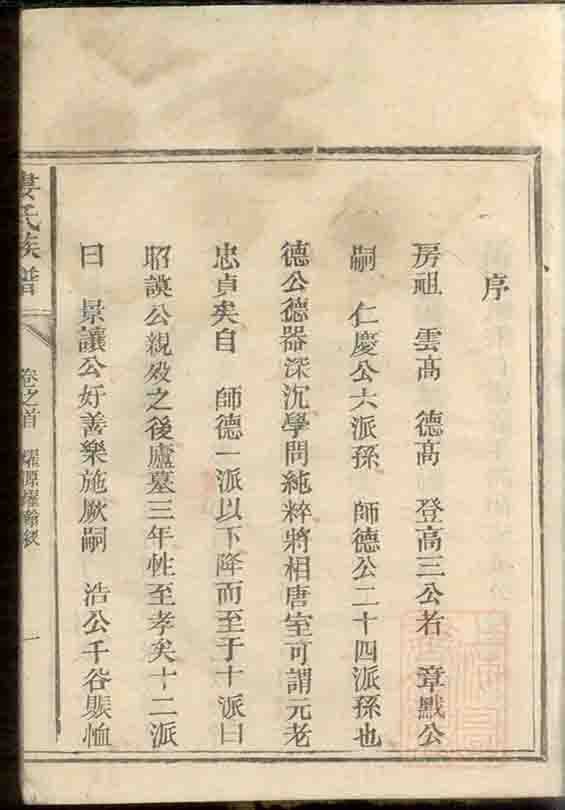 序
房祖 雲高 德高 登高三公者 章戩公
嗣 仁慶公六派孫 師德公二十四派孫也
德公德器深沉學問純粹將相唐室可謂元老
忠貞矣自 師德一派以下降而至于十派曰
昭謨公親歿之後廬墓三年性至孝矣十二派
曰 景讓公好善樂施厥嗣 浩公千谷賑恤
婁氏族譜
卷之首
一